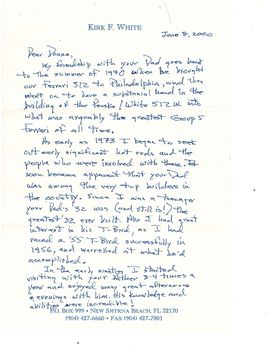 KIRK F. WHITE
June 8, 2000
Dear Deana,
My friendship with your Dad goes back
to the summer of 1970 when he brought
our Ferrari 512 to Philadelphia, and then
went on to have a substantial hand in the
building of the Penske/White 512 M. into
what was arguably the greatest Group 5
Ferrari of all time.
As early as 1973 I began to
seek out early significant hot rods and the
people who were involved with them. It
soon became apparent that your Dad
was among the very top builders in
the country. Since I was a teenager
your Dad's '32 was (and still is!) the
greatest '32 ever built. Also I had great
interest in his T-Bird, as I had
raced a '55 T-Bird successfully in
1956, and marveled at what he'd
accomplished.
In the early I started
visiting with your Father 3-4 times a
year and enjoyed many great afternoons
& evenings with him. His knowledge and
abilities were incredible!
P.O. BOX 999 • NEW SMYRNA BEACH, FL 32170
(904) 427-6660 • FAX (904) 427-7801